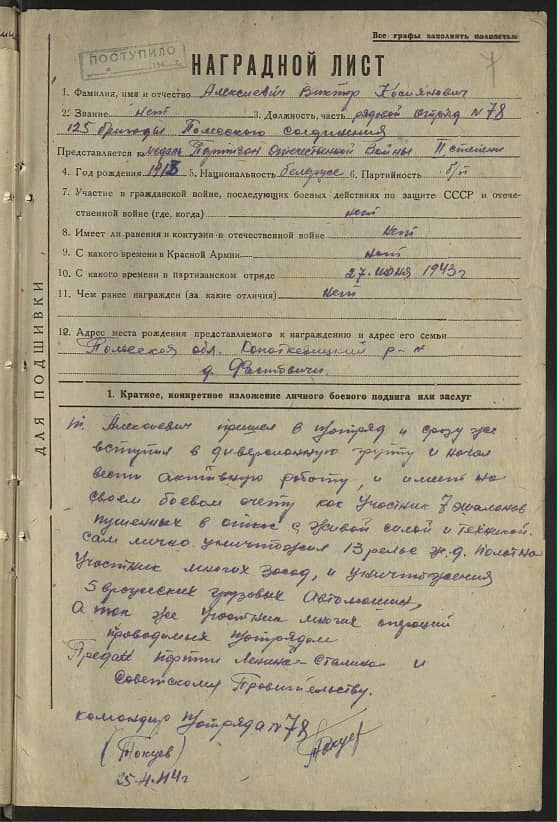 Все графы заполнять полностью
ПОСТУПИЛО
7
НАГРАДНОЙ ЛИСТ
1. Фамилия, имя и отчество Алексиевич Виктор
2. Звание нет 3. Должность, часть рядовой отряд №78
125 бригады Полесского Соединения
Представляется к медаль Партизан Отечественной Войны II степени
4. Год рождения 1918 5. Национальность белорусс 6. Партийность б/п
7. Участие в гражданской войне, последующих боевых действиях по защите СССР и отече-
ственной войне (где, когда) нет
8. Имеет ли ранения и контузии в отечественной войне нет
9. С какого времени в Красной Армии нет
10. С какого времени в партизанском отряде 27 июня 1943г
11. Чем ранее награжден (за какие отличия) нет
12. Адрес места рождения представляемого к награждению и адрес его семьи
Полесская обл. Копаткевицкий р-н
д. Фастовичи.
ДЛЯ ПОДШИВКИ
1. Краткое, конкретное изложение личного боевого подвига или заслуг
т. Алексиевич пришел в п/отряд и сразу же
вступил в диверсионную группу и начал
вести активную работу, и иметь на
своем боевом счету как Участник 7 эшалонов
пушенных в откос с живой силой и техникой.
Сам лично уничтожил 13 рельс ж.д. полотна
Участник многих засад, и уничтожения
5 вражеских грузовых Автомашин,
А так же Участник многих операций
проводимых п/отрядом
Предан партии Ленина-Сталина и
Советскому Правительству.
командир п/отряда №78
(Токуев)
25-4-44г